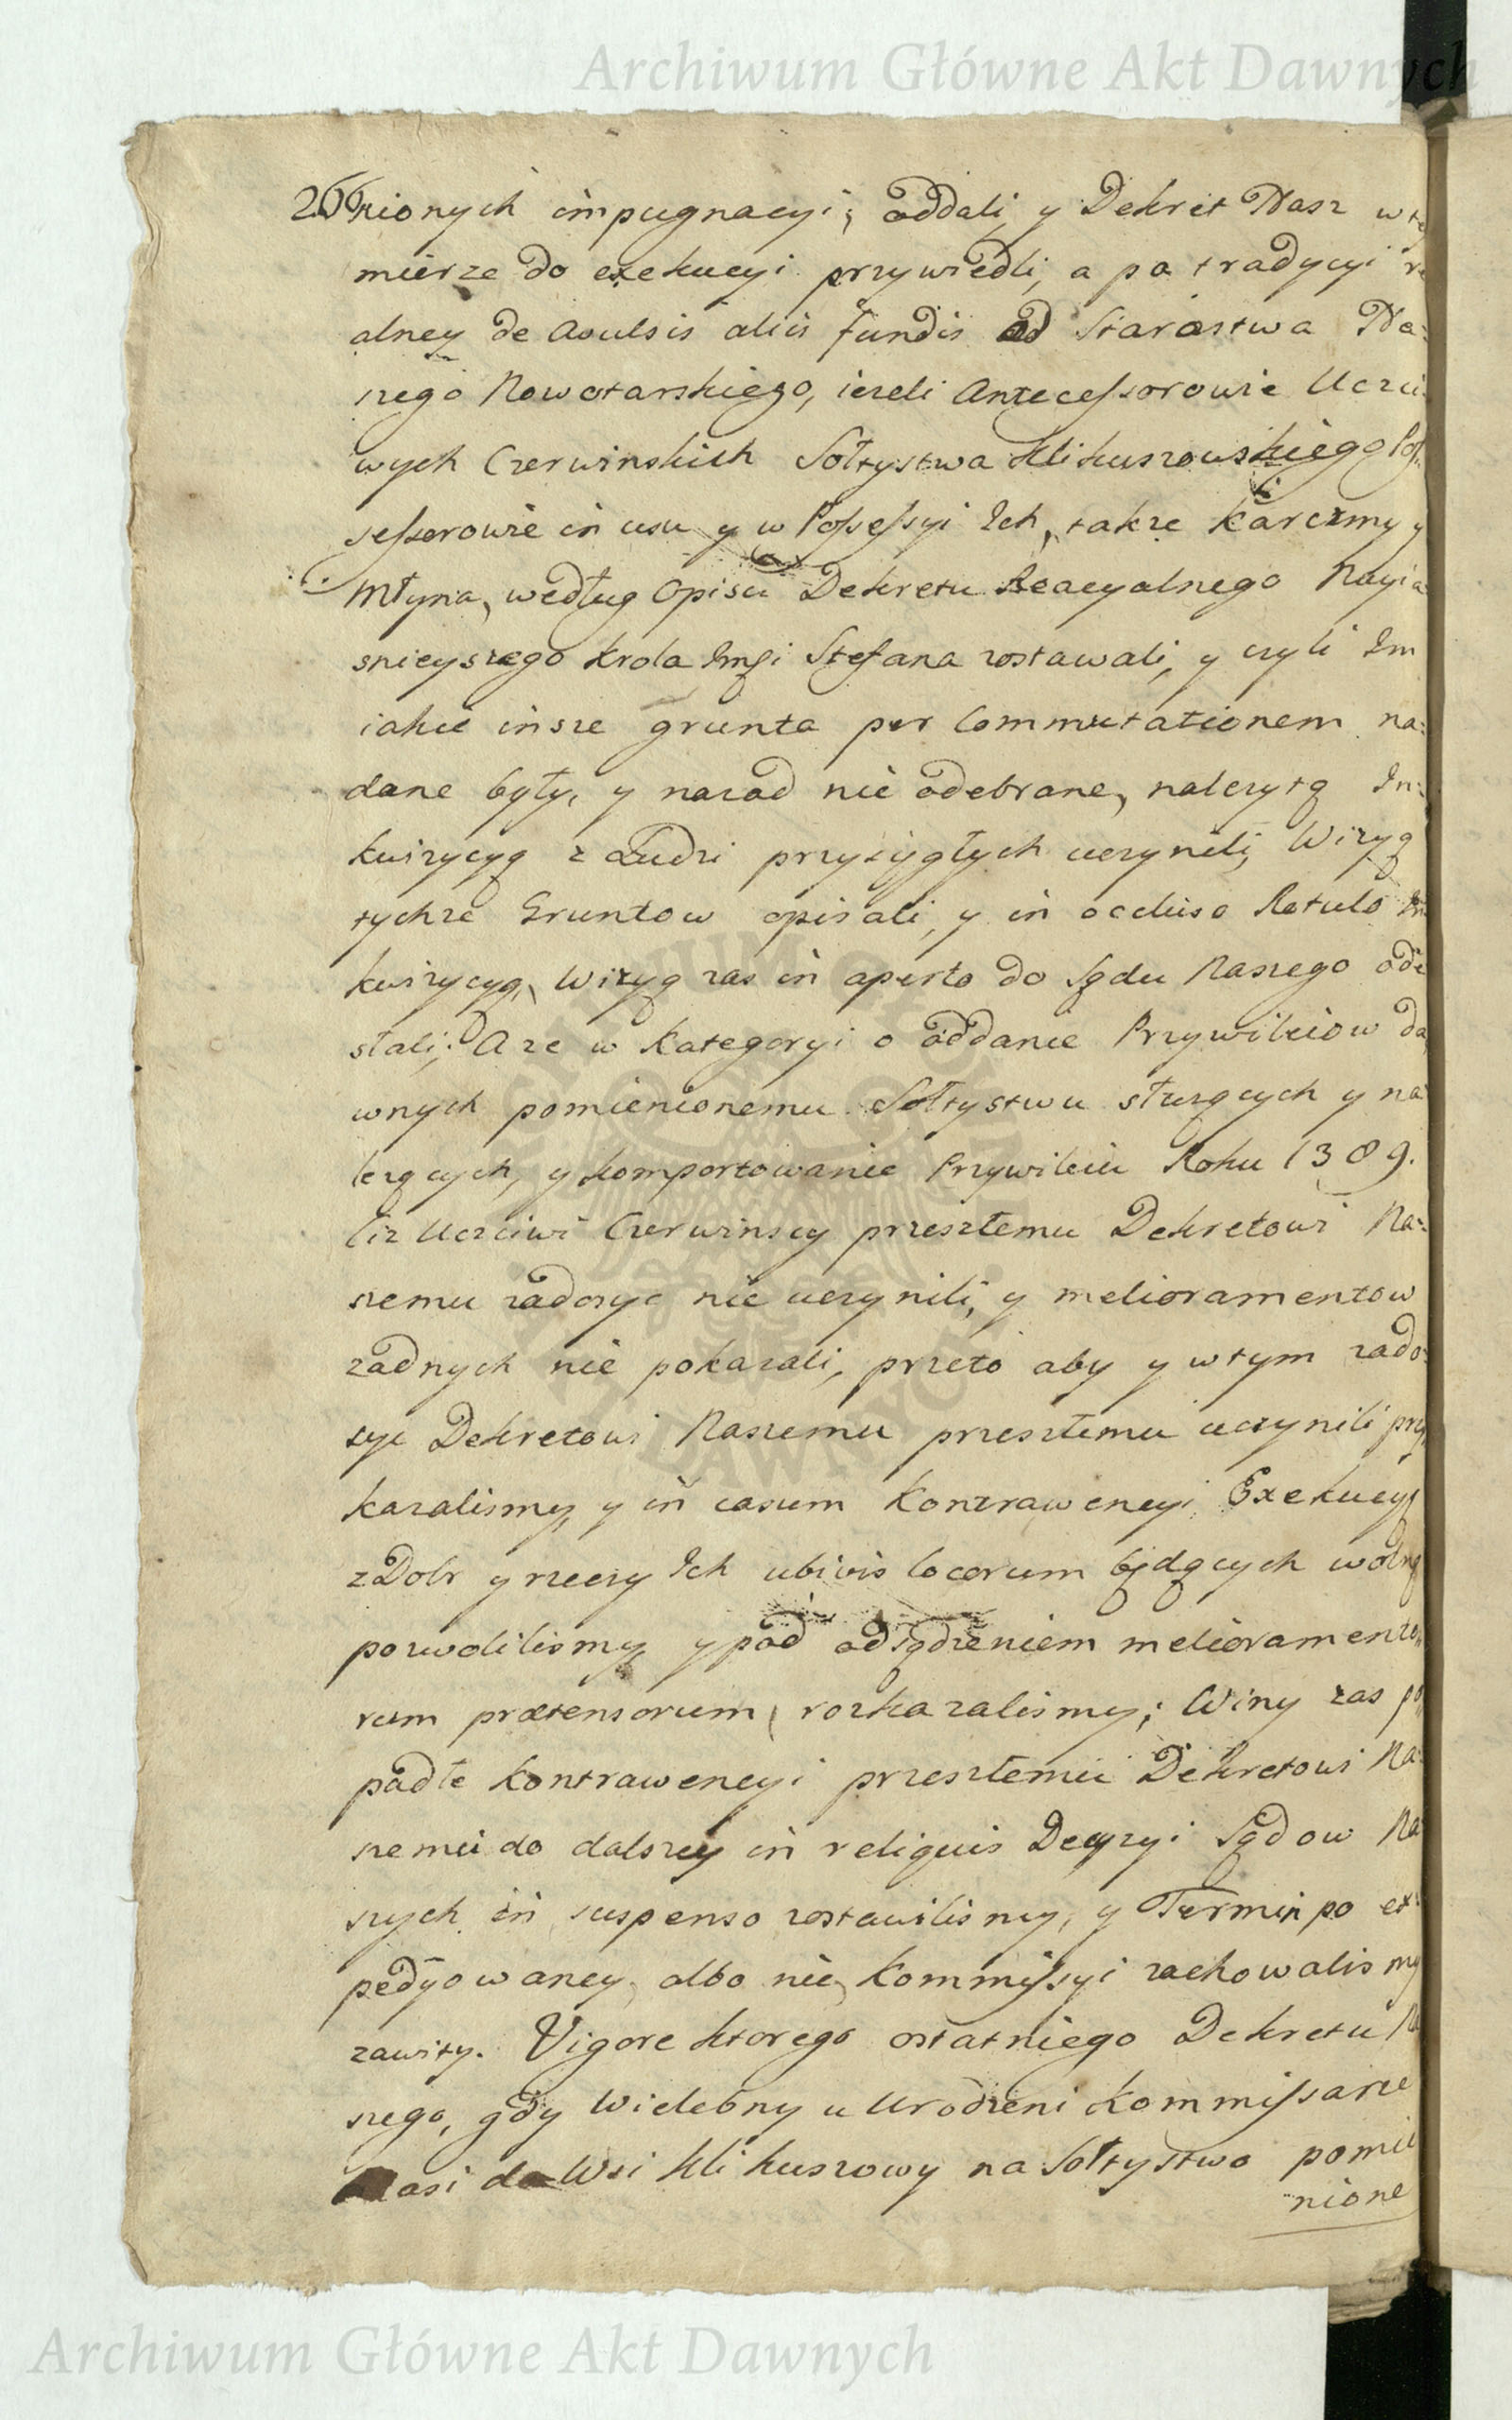 Archiwum Główne Akt Dawnych
266
nionych impugnacyi; oddali, y Dekret Nasz w te
mierze do exekucyi przywiedli, a po tradycyi re
alney de avulsis aliis fundis ad Starostwa Na:
szego Nowotarskiego, iezeli Antecessorowie Uczci:
wych Czerwinskich Sołtystwa Klikuszowskiego Pos:
sessorowie in usu y w Possessyi Ich, takze Karczmy y
Młyna, według Opisu Dekretu Reacyalnego Nayia
snieyszego Krola Imsi Stefana zostawali, y czyli Im
iakie insze grunta per Commutationem na:
dane były, y nazad nie odebrane, nalezytą In:
kwizycyą z Ludzi przysięgłych uczynili, Wizyą
tychze Gruntow opisali, y in occluso Rotulo In
kwizycyą, Wizyą zas in aperto do Sądu Naszego ode
słali; A ze w Kategoryi o oddanie Przywileiow da
wnych pomienionemu Sołtystwu słuzących y na
lezących, y komportowanie Przywileiu Roku 1389.
Ciz Uczciwi Czerwinscy przeszłemu Dekretowi Na:
szemu zadosyc nie uczynili, y melioramentow
zadnych nie pokazali, przeto aby y w tym zado:
syc Dekretowi Naszemu przeszłemu uczynili przy
kazalismy, y in casum Kontrawencyi, Exekucyą
z Dobr y rzeczy Ich ubivis locorum będących wolną
pozwolilismy, y pod odsądzeniem melioramento
rum praetensorum, rozkazalismy; Winy zas po
padłe Kontrawencyi przeszłemu Dekretowi Na:
szemu do dalszey in reliquis Decyzyi Sądow Na
szych in suspenso zostawilismy, y Termin po ex:
pedyowaney, albo nie, Kommissyi zachowalismy
zawity. Vigore ktorego ostatniego Dekretu Na
szego, gdy Wielebny u Urodzeni Kommissarze
Nasi do Wsi Klikuszowy na Sołtystwo pomie
nione
Archiwum Główne Akt Dawnych